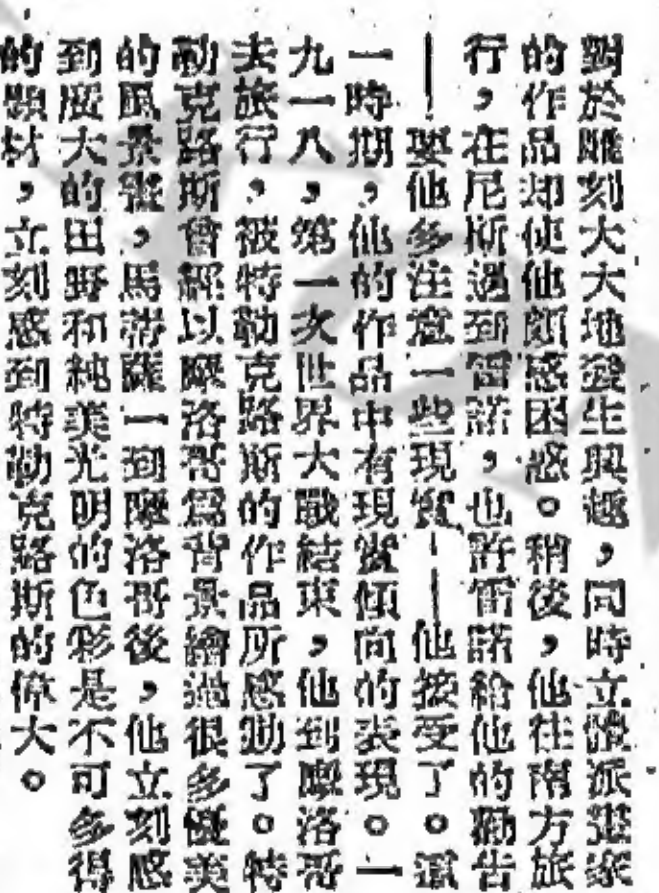 對於雕刻大大地發生興趣，同時立體派畫家
的作品却使他頗感困惑。稍後，他往南方旅
行，在尼斯遇到雷諾，也許雷諾給他的勸告
——要他多注意一些現實——他接受了。這
一時期，他的作品中有現實傾向的表現。一
九一八，第一次世界大戰結束，他到摩洛哥
去旅行，被特勒克路斯的作品所感動了。特
勒克路斯曾經以摩洛哥爲背景繪過很多優美
的風景畫，馬蒂羅一到摩洛哥後，他立刻感
到廣大的田野和純美光明的色彩是不可多得
的題材，立刻感到特勒克路斯的偉大。